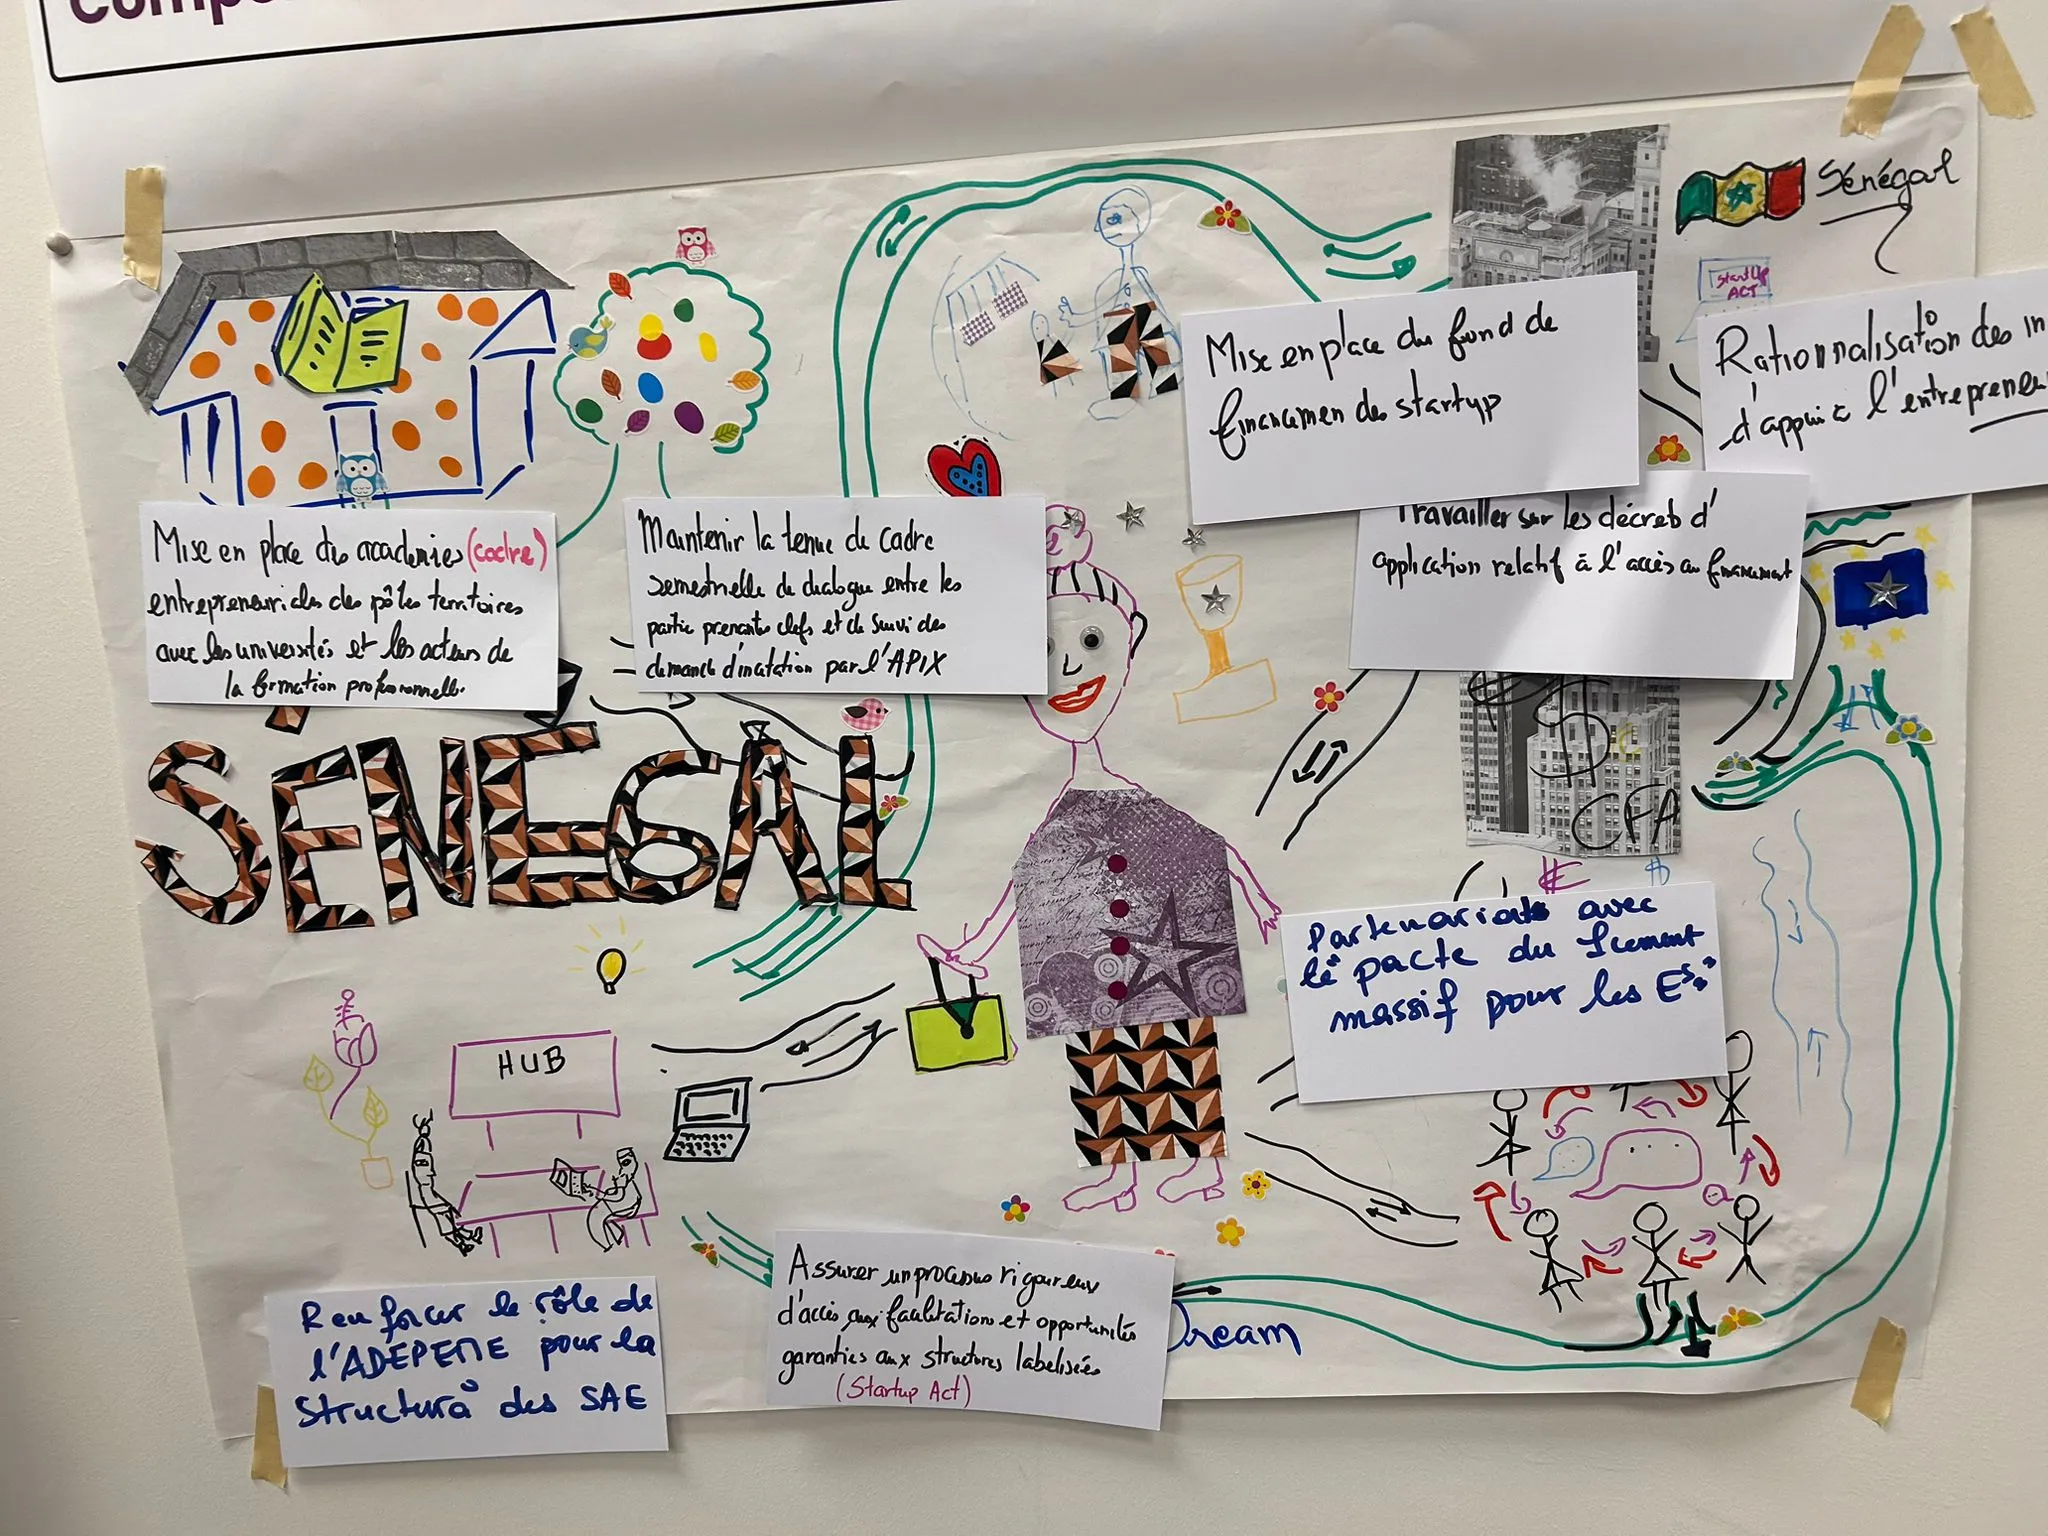 Comp
Sénégal
StartUp
ACT
Mise en place du fond de
financemen des startup
Rationnalisation des in
d'appui à l'entrepreneu
Travailler sur les décrets d'
application relatif à l'accès au financement
Mise en place des academies (cadre)
entrepreneuriales des pôles territoires
avec les universités et les acteurs de
la formation professionnelle.
Maintenir la tenue du cadre
semestrielle de dialogue entre les
partie prenantes clefs et de suivi des
demande d'incitation par l'APIX
SÉNÉGAL
$
CFA
Partenariats avec
le pacte du
massif pour les
HUB
Renforcer le rôle de
l'ADEPEME pour la
structurà des SAE
Assurer un processus rigoureux
d'accès aux facilitations et opportunités
garanties aux structures labelisées
(Startup Act)
Dream